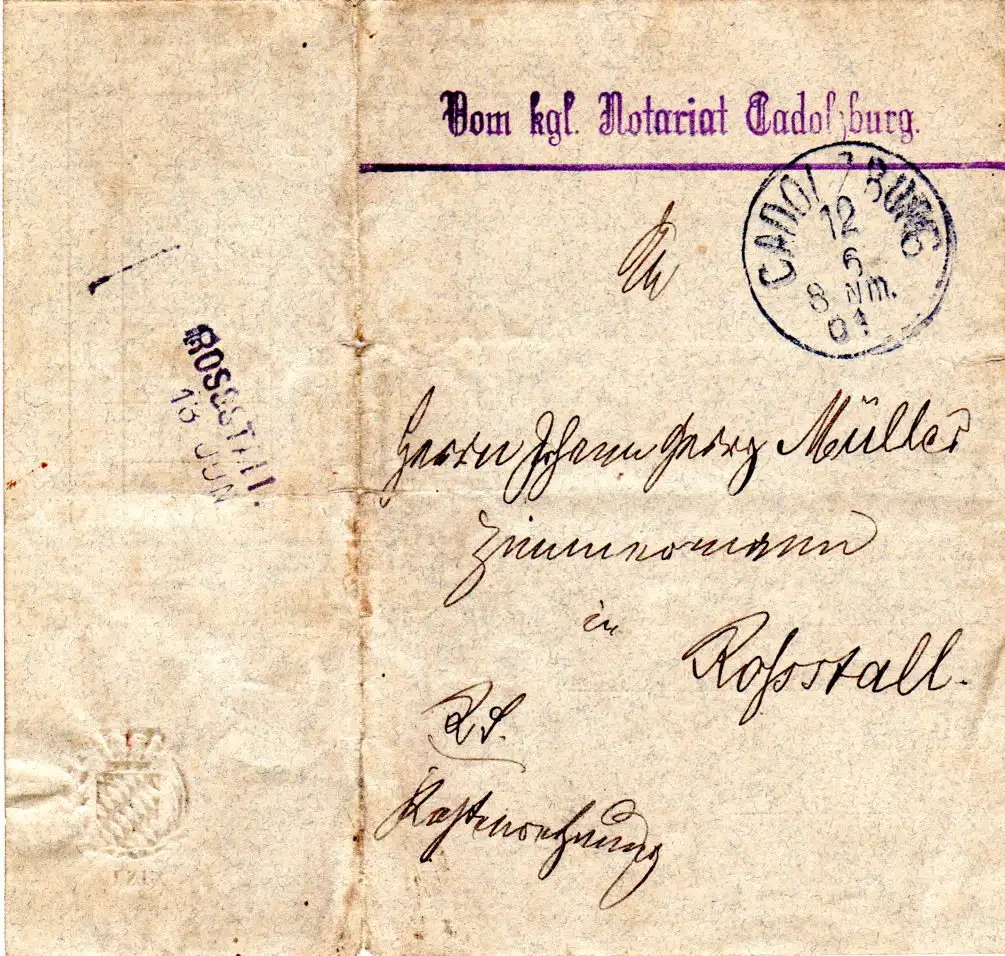 Vom kgl. Notariat Cadolzburg.
CADOLZBURG
12
6
8 Nm.
01
An
ROSSSTALL.
13 JUN
Herrn Johann Georg Müller
Zimmermann
in
Roßstall.
R.S.
Kostenrechnung